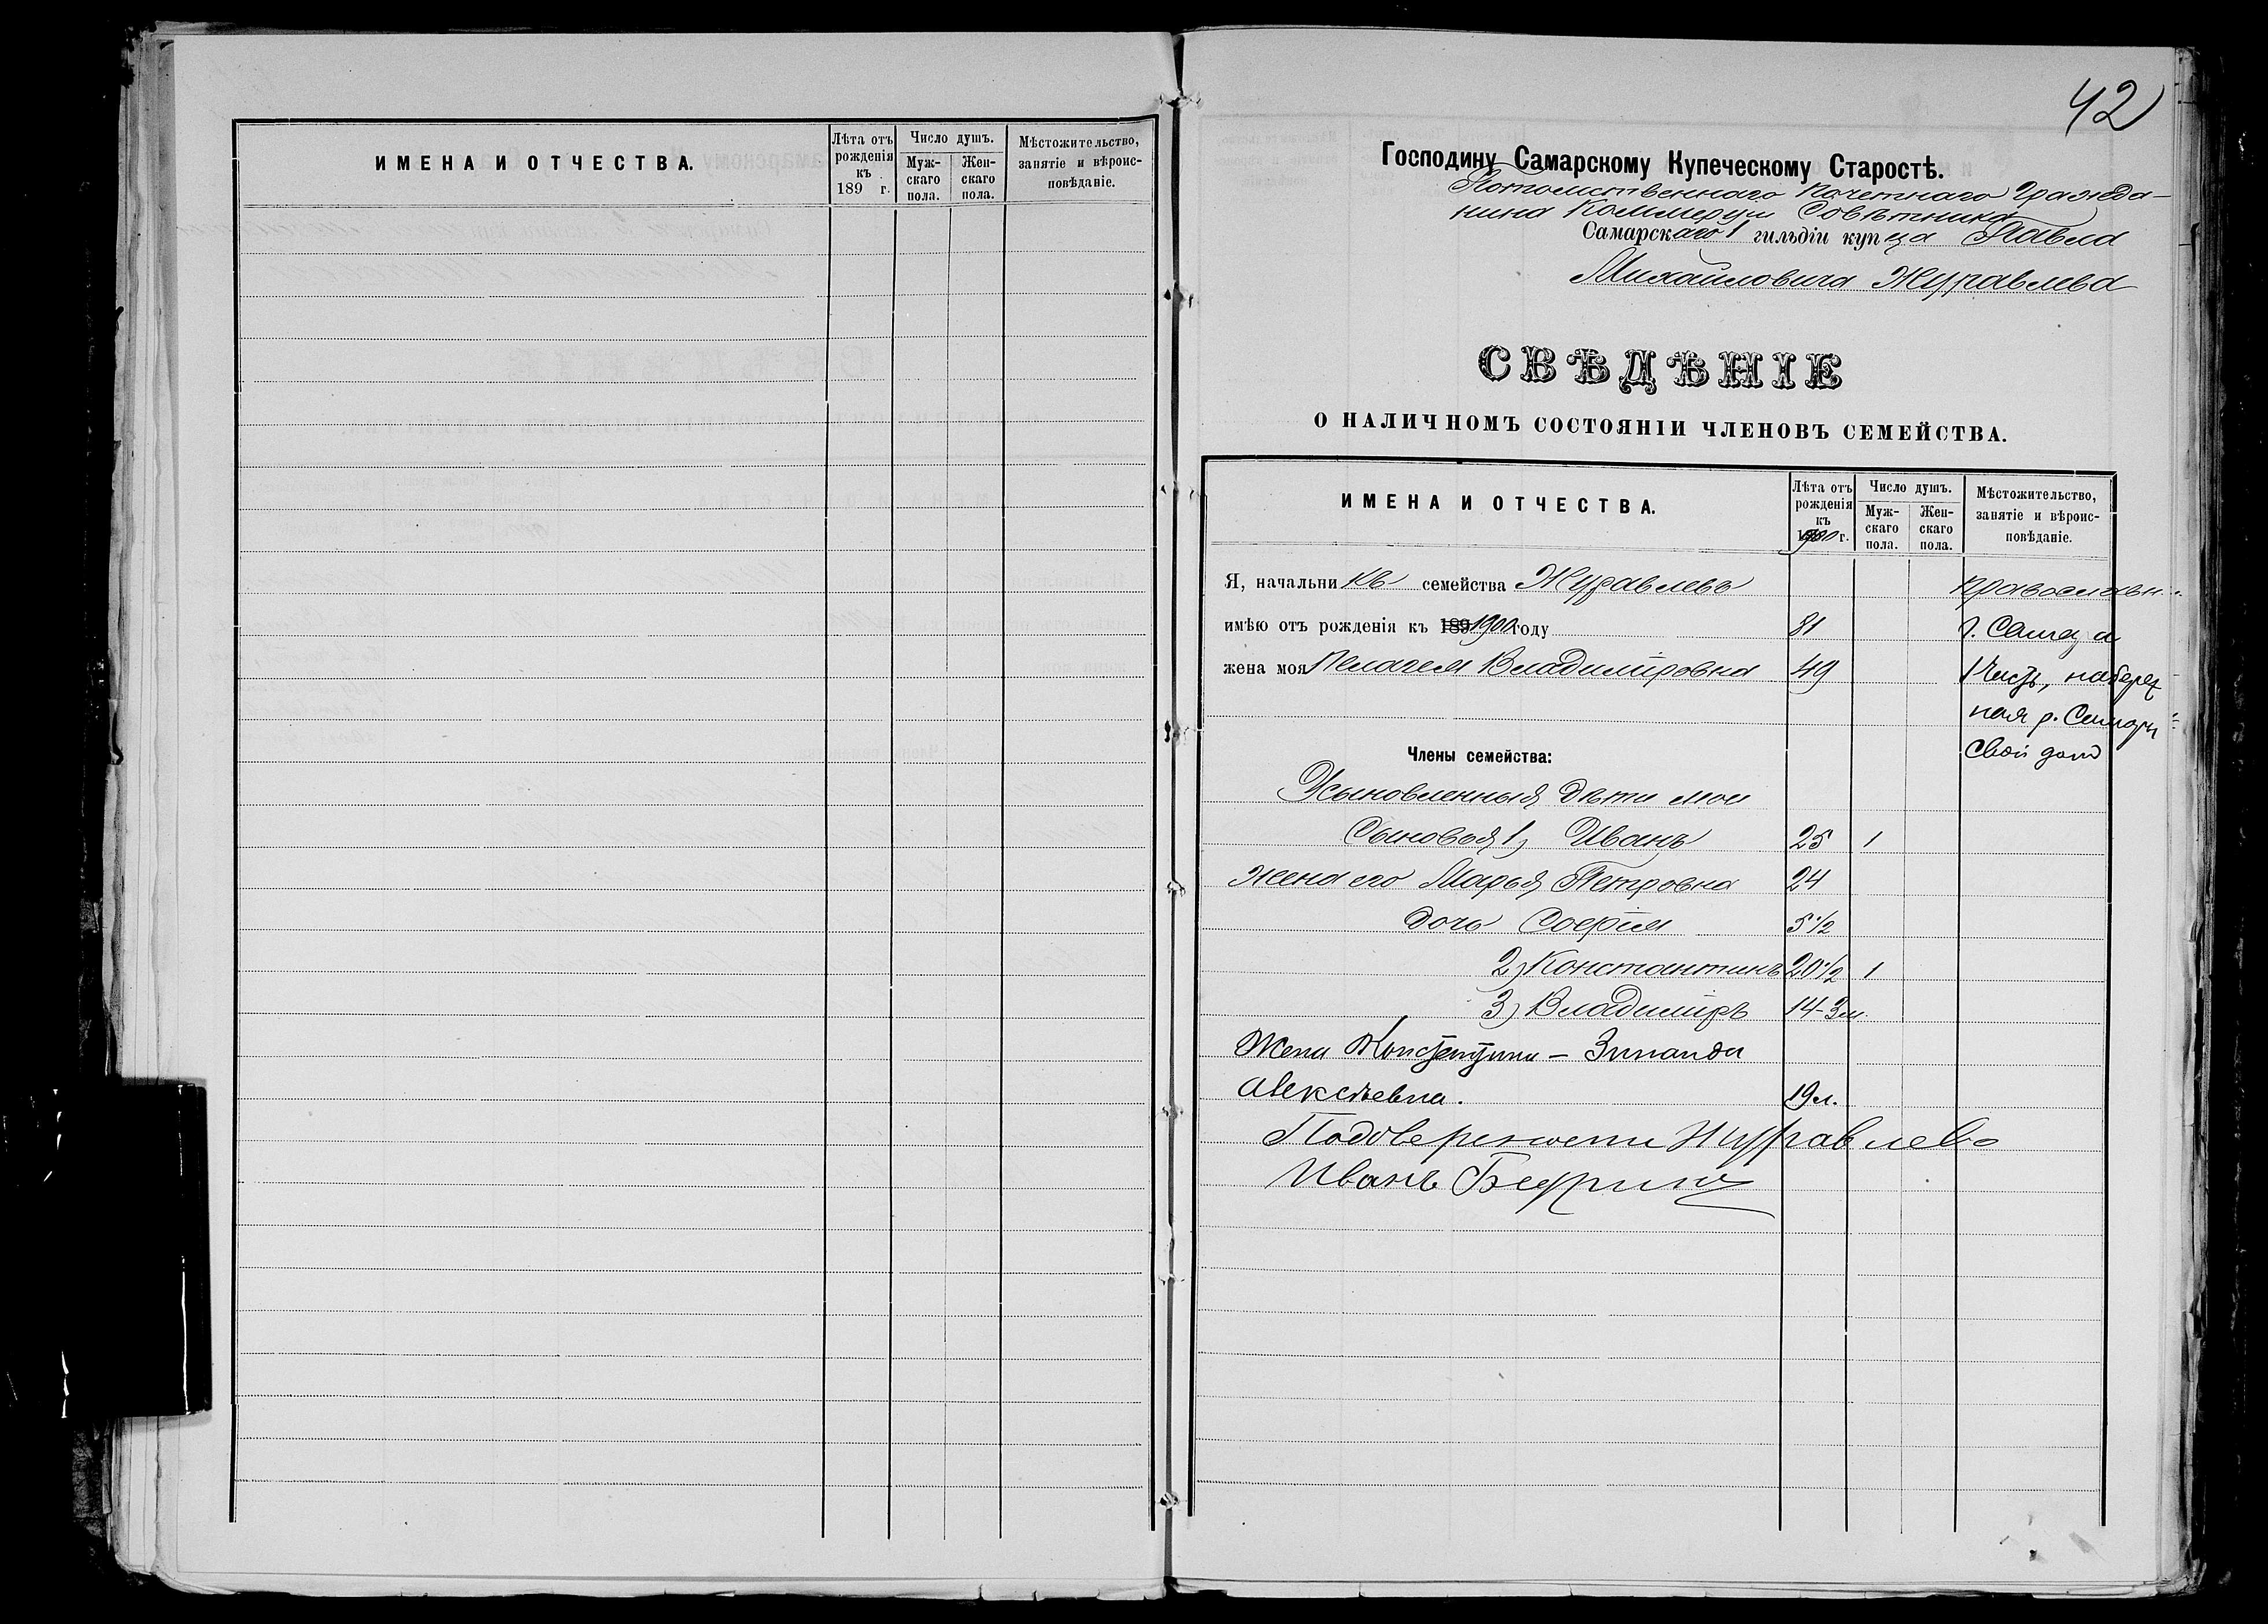 ИМЕНА И ОТЧЕСТВА.
Лѣта отъ рожденія къ 189 г.
Число душъ.
Муж-скаго пола.
Жен-скаго пола.
Мѣстожительство, занятіе и вѣроис-повѣданіе.
42
Господину Самарскому Купеческому Старостѣ.
Потомственнаго Почетнаго Гражда-
нина Коммерціи Совѣтника
Самарскаго 1 гильдіи купца Павла
Михайловича Журавлева
СВѢДѢНІЕ
О НАЛИЧНОМЪ СОСТОЯНІИ ЧЛЕНОВЪ СЕМЕЙСТВА.
ИМЕНА И ОТЧЕСТВА.
Лѣта отъ рожденія къ 1900 г.
Число душъ.
Муж-скаго пола.
Жен-скаго пола.
Мѣстожительство, занятіе и вѣроис-повѣданіе.
Я, начальникъ семейства Журавлевъ православн.
имѣю отъ рожденія къ 189 1900 году 81 г. Самара
жена моя Пелагея Владиміровна 49 1 Часть, набереж
ная р. Самары
свой домъ
Члены семейства:
Усыновленныя дѣти мои
Сыновья 1) Иванъ 25 1
Жена его Марья Петровна 24
дочь Софія 5 1/2
2) Константинъ 20 1/2 1
3) Владиміръ 14-3 м.
Жена Константина - Зинаида
Алексѣевна. 19 л.
По довѣренности Журавлева
Иванъ